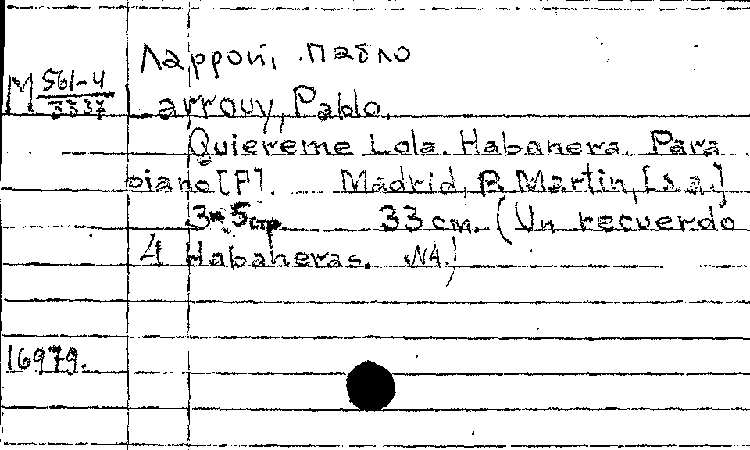 Ларрои, Пабло
М 561-4
3337
arrouy, Pablo.
Quiereme Lola. Habanera. Para
piano [F]. Madrid, P. Martin, [s.a.]
3-5 стр. 33 cm. (Un recuerdo
4 Habaneras. №4.)
16979.